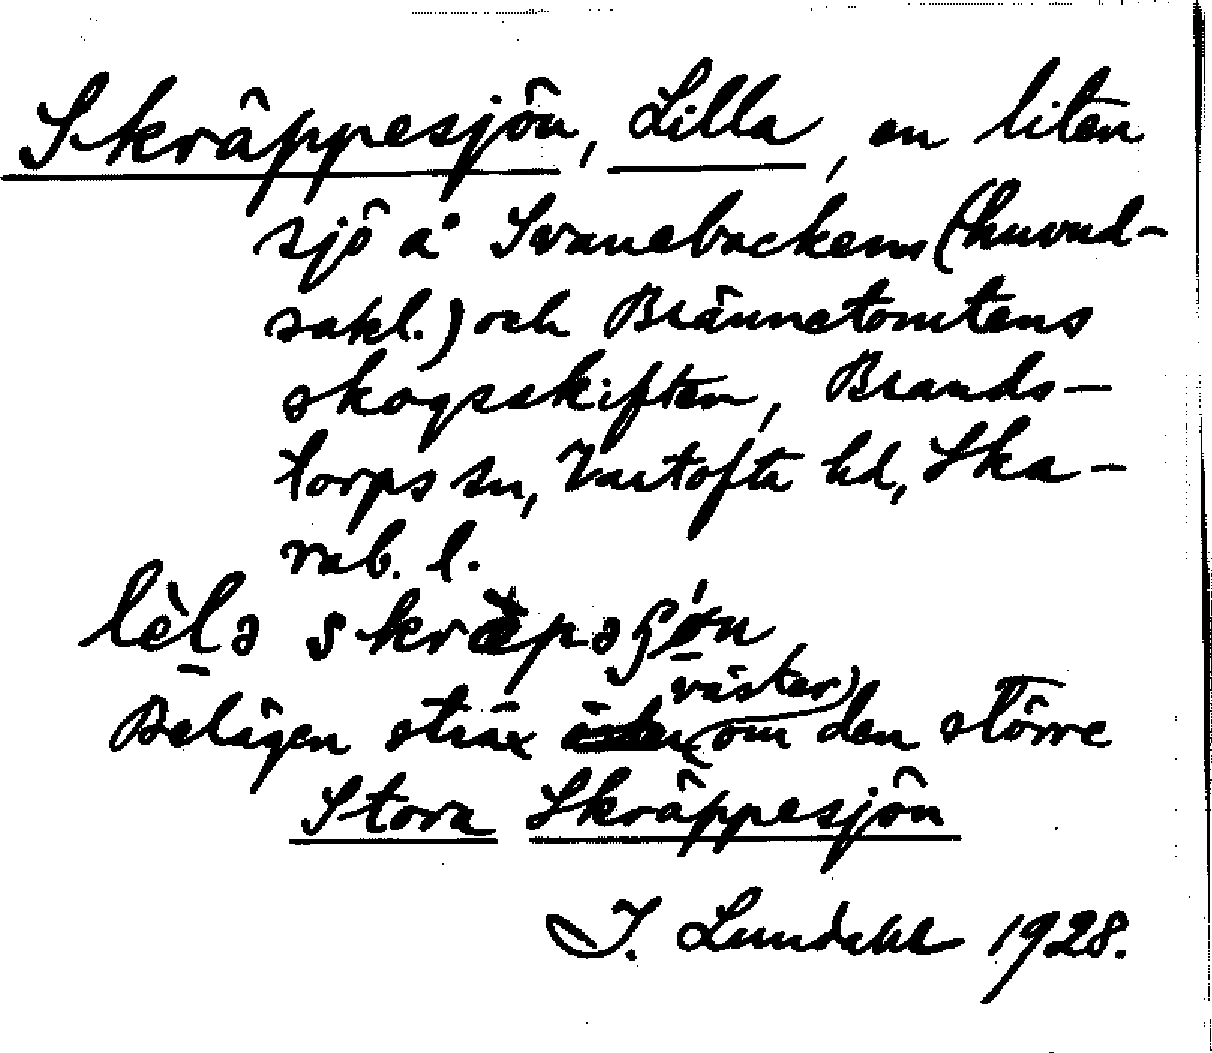 Skräppesjön, Lilla, en liten
sjö å Svanebackens (huvud-
sakl.) och Brännetomtens
skogsskiften, Brands-
torps sn, Vartofta hd, Ska-
rab. l.
lèlə skræpəʃøn
väster
Belägen strax om den större
Stora Skräppesjön
I. Lundahl 1928.